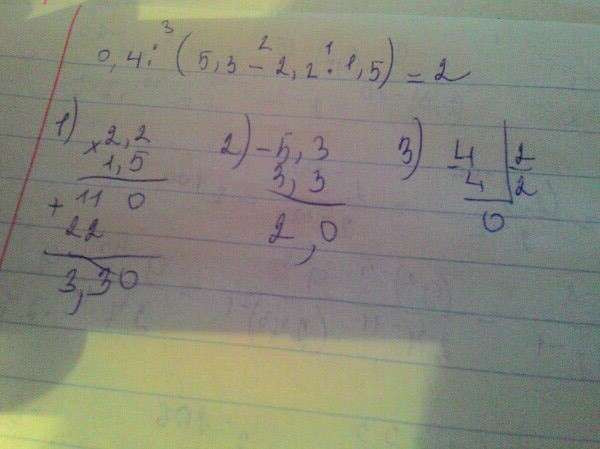 0,4 :³ (5,3 -² 2,2 ·¹ 1,5) = 2
1) × 2,2 2) - 5,3 3) - 4 | 2
1,5 3,3 4 | 2
+ 11 0 2,0 0
22
3,30